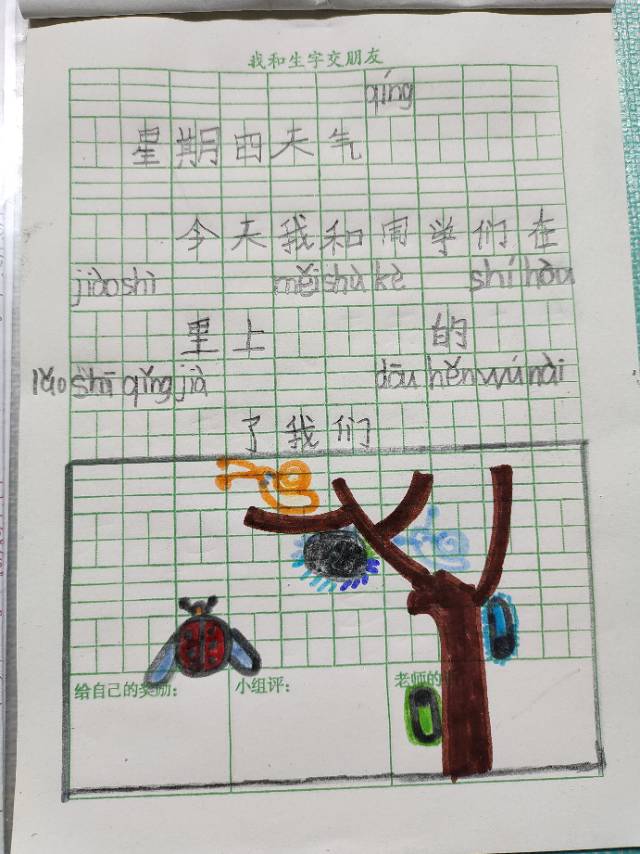 我和生字交朋友
qíng
星期四天气
今天我和同学们在
jiàoshì měishù kè shíhòu
里上 的
lǎo shī qǐng jià dōu hěn wú nài
了我们
给自己的奖励： 小组评： 老师的